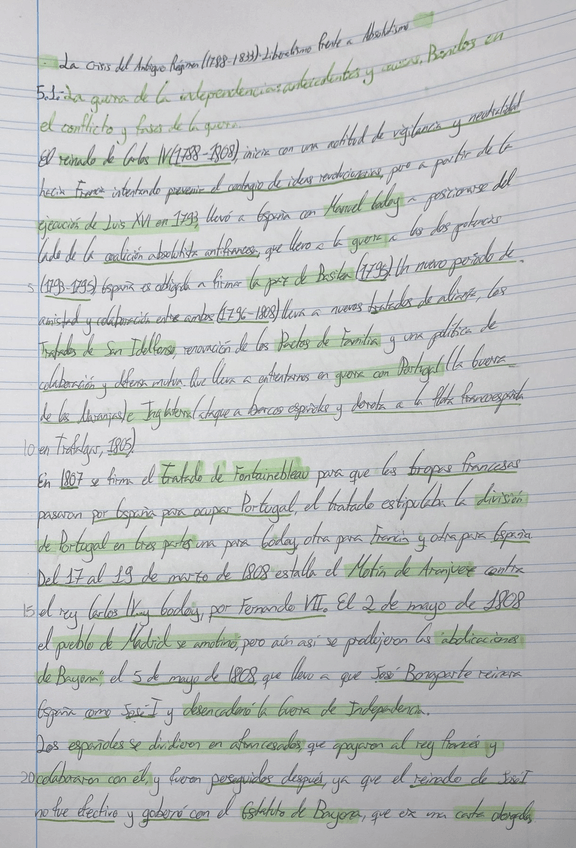 · La crisis del Antiguo Régimen (1788-1833): Liberalismo frente a Absolutismo
5.1: La guerra de la independencia: antecedentes y causas. Bandos en
el conflicto y fases de la guerra
El reinado de Carlos IV (1788-1808) inicia con una actitud de vigilancia y neutralidad
hacia Francia intentando prevenir el contagio de ideas revolucionarias, pero a partir de la
ejecución de Luis XVI en 1793, llevó a España con Manuel Godoy a posicionarse del
lado de la coalición absolutista antifrancesa, que llevo a la guerra a las dos potencias
5 (1793-1795) España es obligada a firmar la paz de Basilea (1795) Un nuevo periodo de
amistad y colaboración entre ambos (1796-1808) lleva a nuevos tratados de alianza, los
Tratados de San Idelfonso, renovación de los Pactos de Familia y una política de
colaboración y defensa mutua que lleva a enfrentarnos en guerra con Portugal (la Guerra
de las Naranjas) e Inglaterra (ataque a barcos españoles y derrota a la flota francoespañola
10 en Trafalgar, 1805)
En 1807 se firma el Tratado de Fontainebleau para que las tropas francesas
pasaran por España para ocupar Portugal, el tratado estipulaba la división
de Portugal en tres partes una para Godoy, otra para Francia y otra para España
Del 17 al 19 de marzo de 1808 estalla el Motín de Aranjuez contra
15 el rey Carlos IV y Godoy, por Fernando VII. El 2 de mayo de 1808
el pueblo de Madrid se amotino, pero aún así se produjeron las abdicaciones
de Bayona, el 5 de mayo de 1808 que llevo a que José Bonaparte reinara
España como José I y desencadenó la Guerra de Independencia.
Los españoles se dividieron en afrancesados que apoyaron al rey francés y
20 colaboraron con él, y fueron perseguidos después, ya que el reinado de José I
no fue efectivo y gobernó con el Estatuto de Bayona, que era una carta otorgada.